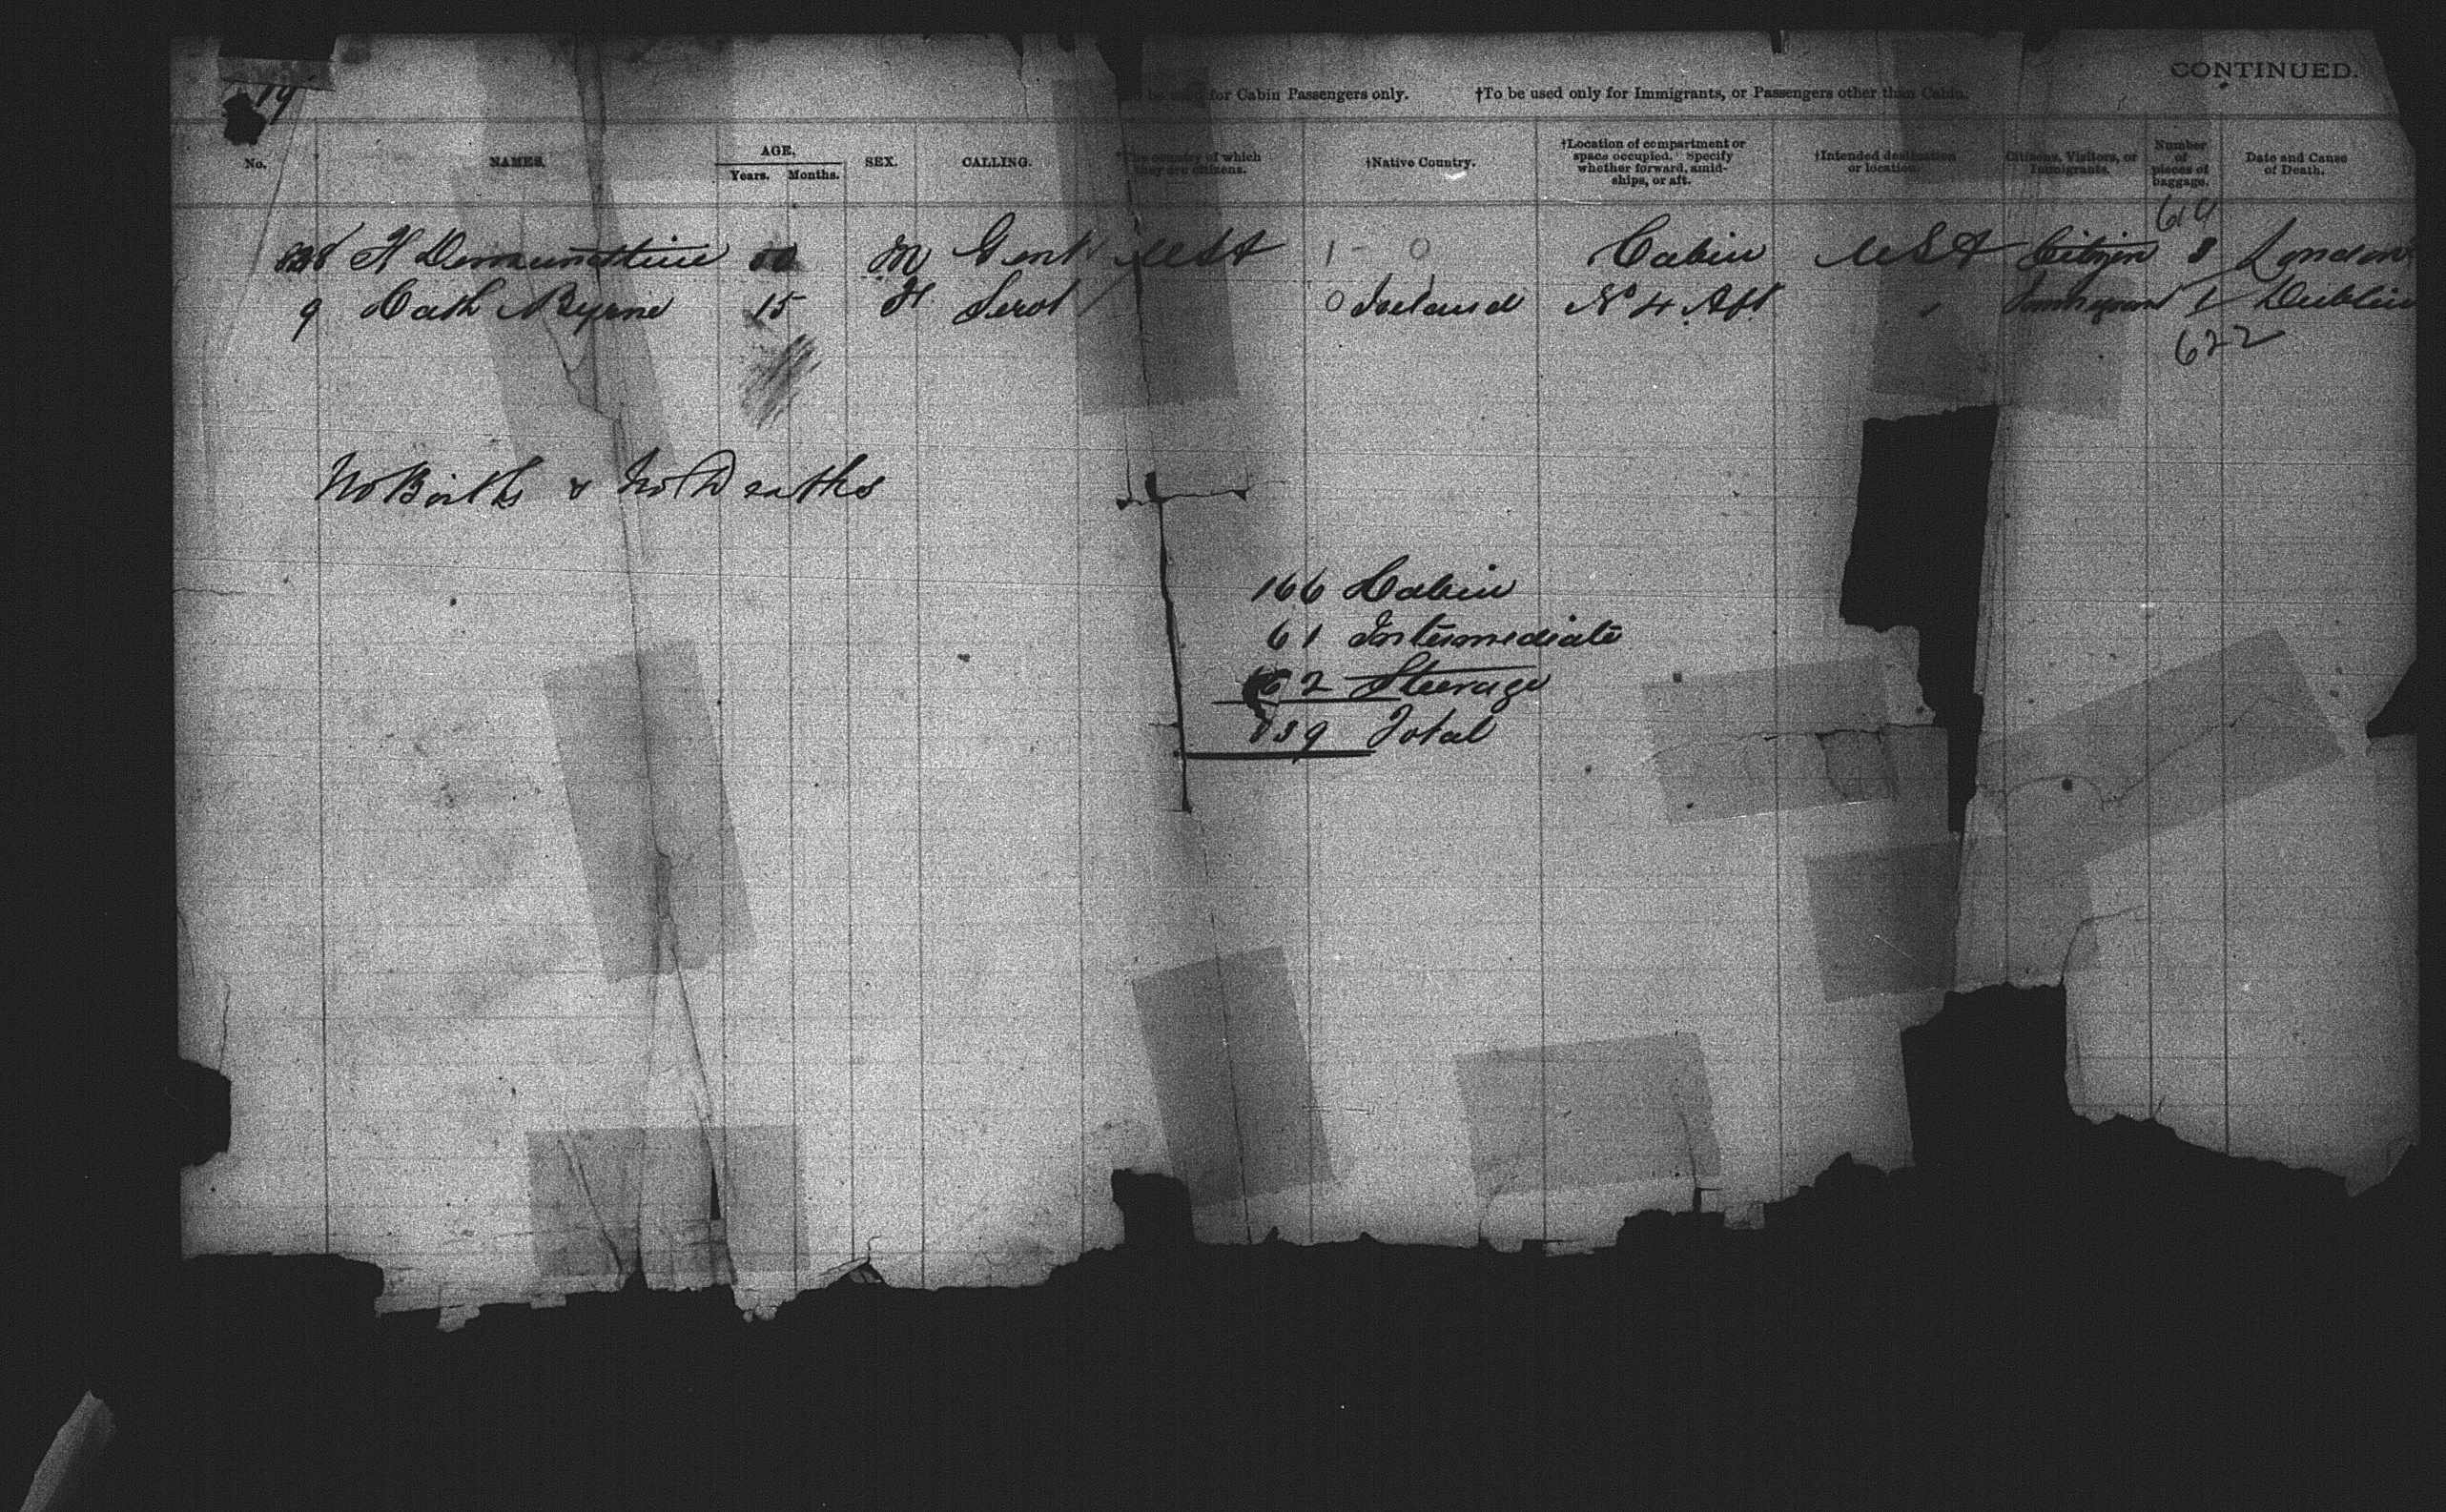 CONTINUED.
19
for Cabin Passengers only. †To be used only for Immigrants, or Passengers other than Cabin.
No. NAMES. AGE. Years. Months. SEX. CALLING. *The country of which they are citizens. †Native Country. †Location of compartment or space occupied. Specify whether forward, amidships, or aft. †Intended destination or location. Citizens, Visitors, or Immigrants. Number of pieces of baggage. Date and Cause of Death.
614
H M Gent USA 1 0 Cabin USA Citizen 8 London
9 Cath Byrne 15 F Servt 0 Ireland No 4 Aft " Immigrant 1 Dublin
622
No Births & No Deaths
166 Cabin
61 Intermediate
62 Steerage
39 Total